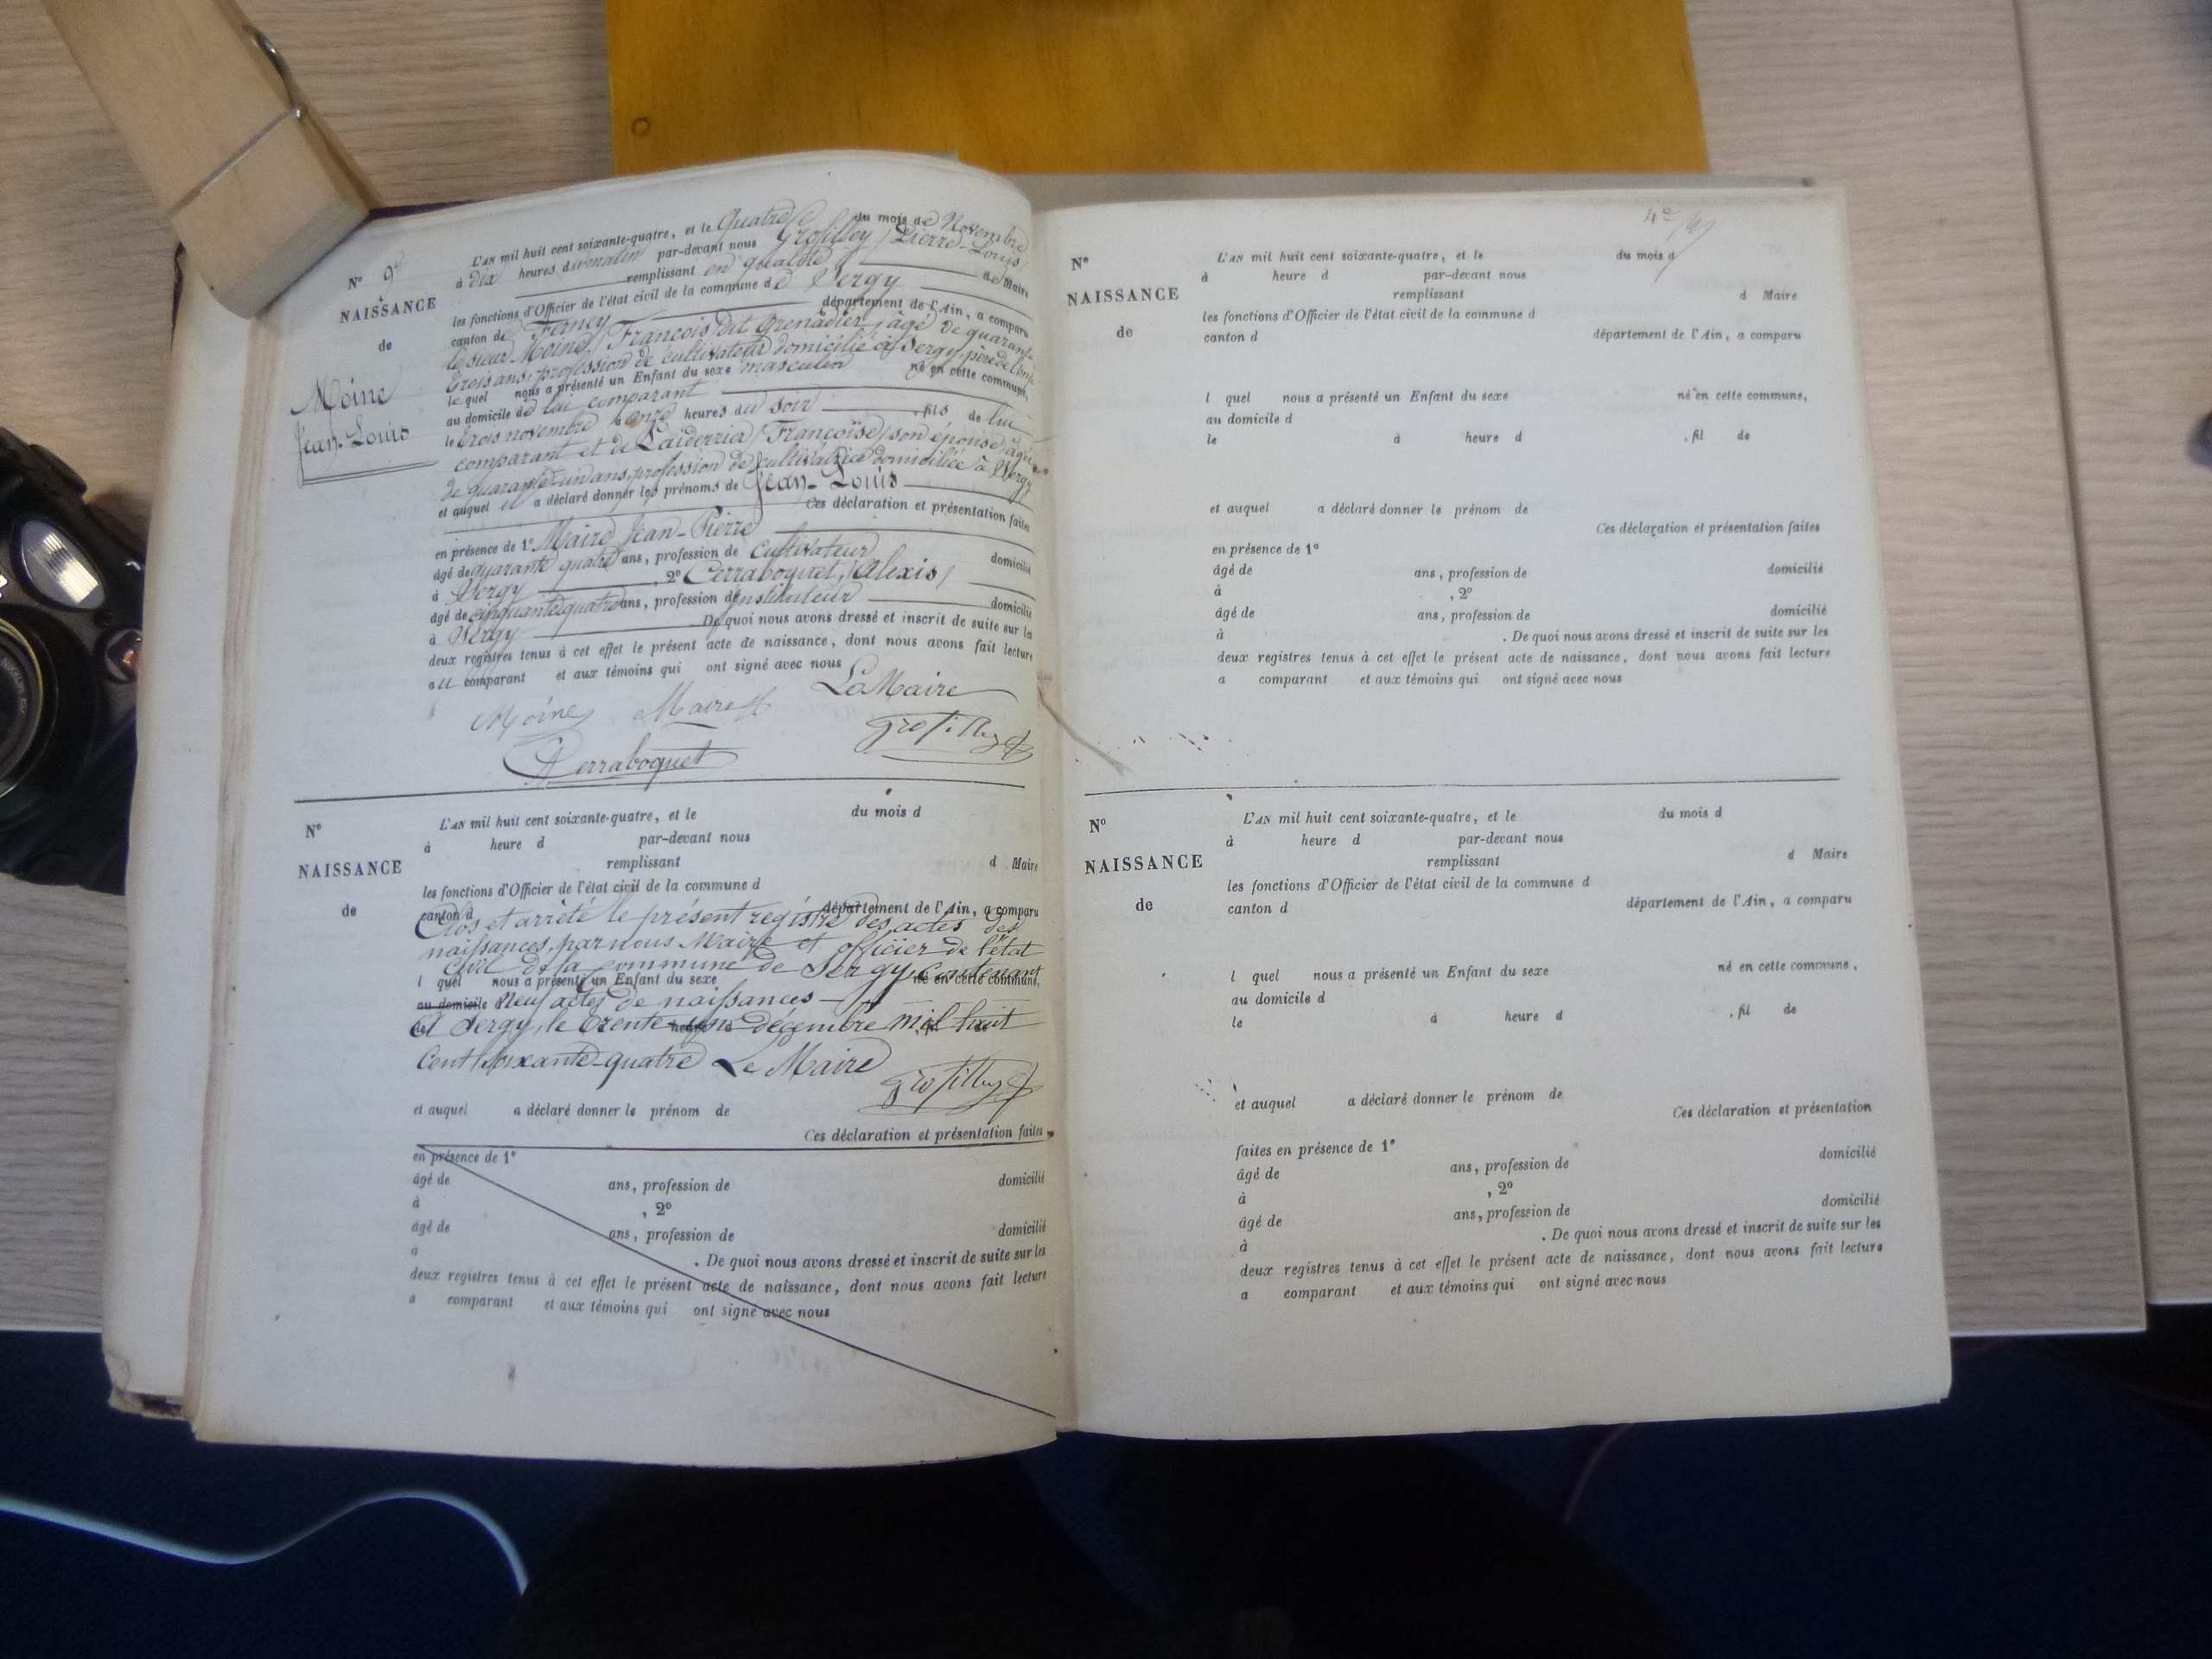 N° 9
NAISSANCE
de
Moine
Jean-Louis
L'AN mil huit cent soixante-quatre, et le Quatre du mois de Novembre
à dix heures du matin par-devant nous Grosfilley, Pierre-Louis
remplissant en qualité de Maire
les fonctions d'Officier de l'état civil de la commune de Sergy
canton de Ferney département de l'Ain, a comparu
le sieur Moine, François dit Grenadier, âgé de quarante
trois ans, profession de cultivateur domicilié à Sergy, père de l'enfant
lequel nous a présenté un Enfant du sexe masculin né en cette commune,
au domicile de lui comparant
le trois novembre à onze heures du soir , fils de lui
comparant et de Françoise, son épouse, âgée
de quarante un ans, profession de cultivatrice domiciliée à Sergy
et auquel il a déclaré donner les prénoms de Jean-Louis
Ces déclaration et présentation faites
en présence de 1° Maire Jean-Pierre
âgé de quarante quatre ans, profession de cultivateur domicilié
à Sergy , 2° Perraboquet, Alexis
âgé de cinquante quatre ans, profession d'instituteur domicilié
à Sergy . De quoi nous avons dressé et inscrit de suite sur les
deux registres tenus à cet effet le présent acte de naissance, dont nous avons fait lecture
au comparant et aux témoins qui ont signé avec nous
Le Maire
Moine Maire
Grosfilley
Perraboquet
N°
NAISSANCE
de
L'AN mil huit cent soixante-quatre, et le du mois d
à heure d par-devant nous
remplissant d Maire
les fonctions d'Officier de l'état civil de la commune d
canton d département de l'Ain, a comparu
Clos et arrêté le présent registre des actes des
naissances, par nous Maire et officier de l'état
civil de la commune de Sergy, contenant
l quel nous a présenté un Enfant du sexe né en cette commune,
au domicile d
Neuf actes de naissances
A Sergy, le trente-un décembre mil huit
Cent Soixante-quatre Le Maire
Grosfilley
et auquel a déclaré donner le prénom de
Ces déclaration et présentation faites
en présence de 1°
âgé de ans, profession de domicilié
à , 2°
âgé de ans, profession de domicilié
à . De quoi nous avons dressé et inscrit de suite sur les
deux registres tenus à cet effet le présent acte de naissance, dont nous avons fait lecture
a comparant et aux témoins qui ont signé avec nous
N°
NAISSANCE
de
L'AN mil huit cent soixante-quatre, et le du mois d
à heure d par-devant nous
remplissant d Maire
les fonctions d'Officier de l'état civil de la commune d
canton d département de l'Ain, a comparu
l quel nous a présenté un Enfant du sexe né en cette commune,
au domicile d
le à heure d , fil de
et auquel a déclaré donner le prénom de
Ces déclaration et présentation faites
en présence de 1°
âgé de ans, profession de domicilié
à , 2°
âgé de ans, profession de domicilié
à . De quoi nous avons dressé et inscrit de suite sur les
deux registres tenus à cet effet le présent acte de naissance, dont nous avons fait lecture
a comparant et aux témoins qui ont signé avec nous
N°
NAISSANCE
de
L'AN mil huit cent soixante-quatre, et le du mois d
à heure d par-devant nous
remplissant d Maire
les fonctions d'Officier de l'état civil de la commune d
canton d département de l'Ain, a comparu
l quel nous a présenté un Enfant du sexe né en cette commune,
au domicile d
le à heure d , fil de
et auquel a déclaré donner le prénom de
Ces déclaration et présentation
faites en présence de 1°
âgé de ans, profession de domicilié
à , 2°
âgé de ans, profession de domicilié
à . De quoi nous avons dressé et inscrit de suite sur les
deux registres tenus à cet effet le présent acte de naissance, dont nous avons fait lecture
a comparant et aux témoins qui ont signé avec nous